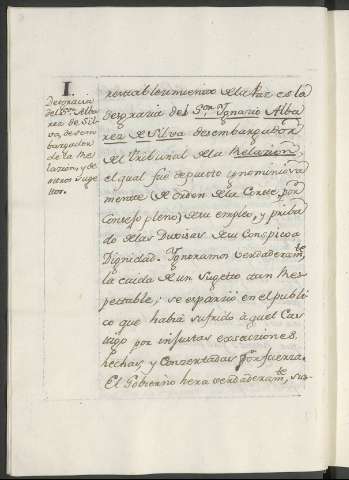 I.
Desgracia
del Sor. Alba
rez de Sil-
va, desem
bargador
de la Re
lazion, y de
otros Suge
ttos.
restablecimiento de la Paz es la
desgracia del Sor. Ygnacio Alba
rez de Silva desembargador
del tribunal de la Relazion,
el qual fue depuesto ignominiosa
mente (de orden de la Corte, por
Consejo pleno) de su empleo, y priba
do de las Divisas de su Conspicua
Dignidad. Ygnoramos verdaderamte.
la caida de un Sugetto tan Res
pectable; se esparció en el publi
co que habia sufrido aquel Cas
tigo por injustas exacciones,
hechas, y Concertadas por fuerza.
El Gobierno hera verdaderamte. sus-